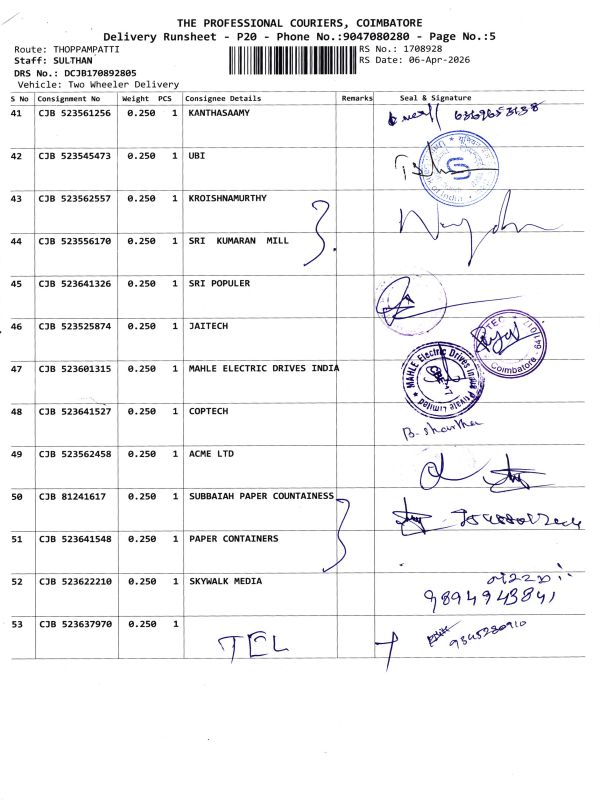 THE PROFESSIONAL COURIERS, COIMBATORE
Delivery Runsheet - P20 - Phone No.:9047080280 - Page No.:5
Route: THOPPAMPATTI RS No.: 1708928
Staff: SULTHAN RS Date: 06-Apr-2026
DRS No.: DCJB170892805
Vehicle: Two Wheeler Delivery
S No Consignment No Weight PCS Consignee Details Remarks Seal & Signature
41 CJB 523561256 0.250 1 KANTHASAAMY
42 CJB 523545473 0.250 1 UBI
43 CJB 523562557 0.250 1 KROISHNAMURTHY
44 CJB 523556170 0.250 1 SRI KUMARAN MILL
45 CJB 523641326 0.250 1 SRI POPULER
46 CJB 523525874 0.250 1 JAITECH
Coimbatore
47 CJB 523601315 0.250 1 MAHLE ELECTRIC DRIVES INDIA
MAHLE Electric Drives India Private Limited
48 CJB 523641527 0.250 1 COPTECH
49 CJB 523562458 0.250 1 ACME LTD
50 CJB 81241617 0.250 1 SUBBAIAH PAPER COUNTAINESS
51 CJB 523641548 0.250 1 PAPER CONTAINERS
52 CJB 523622210 0.250 1 SKYWALK MEDIA
9894943841
53 CJB 523637970 0.250 1
TEL
9345280910